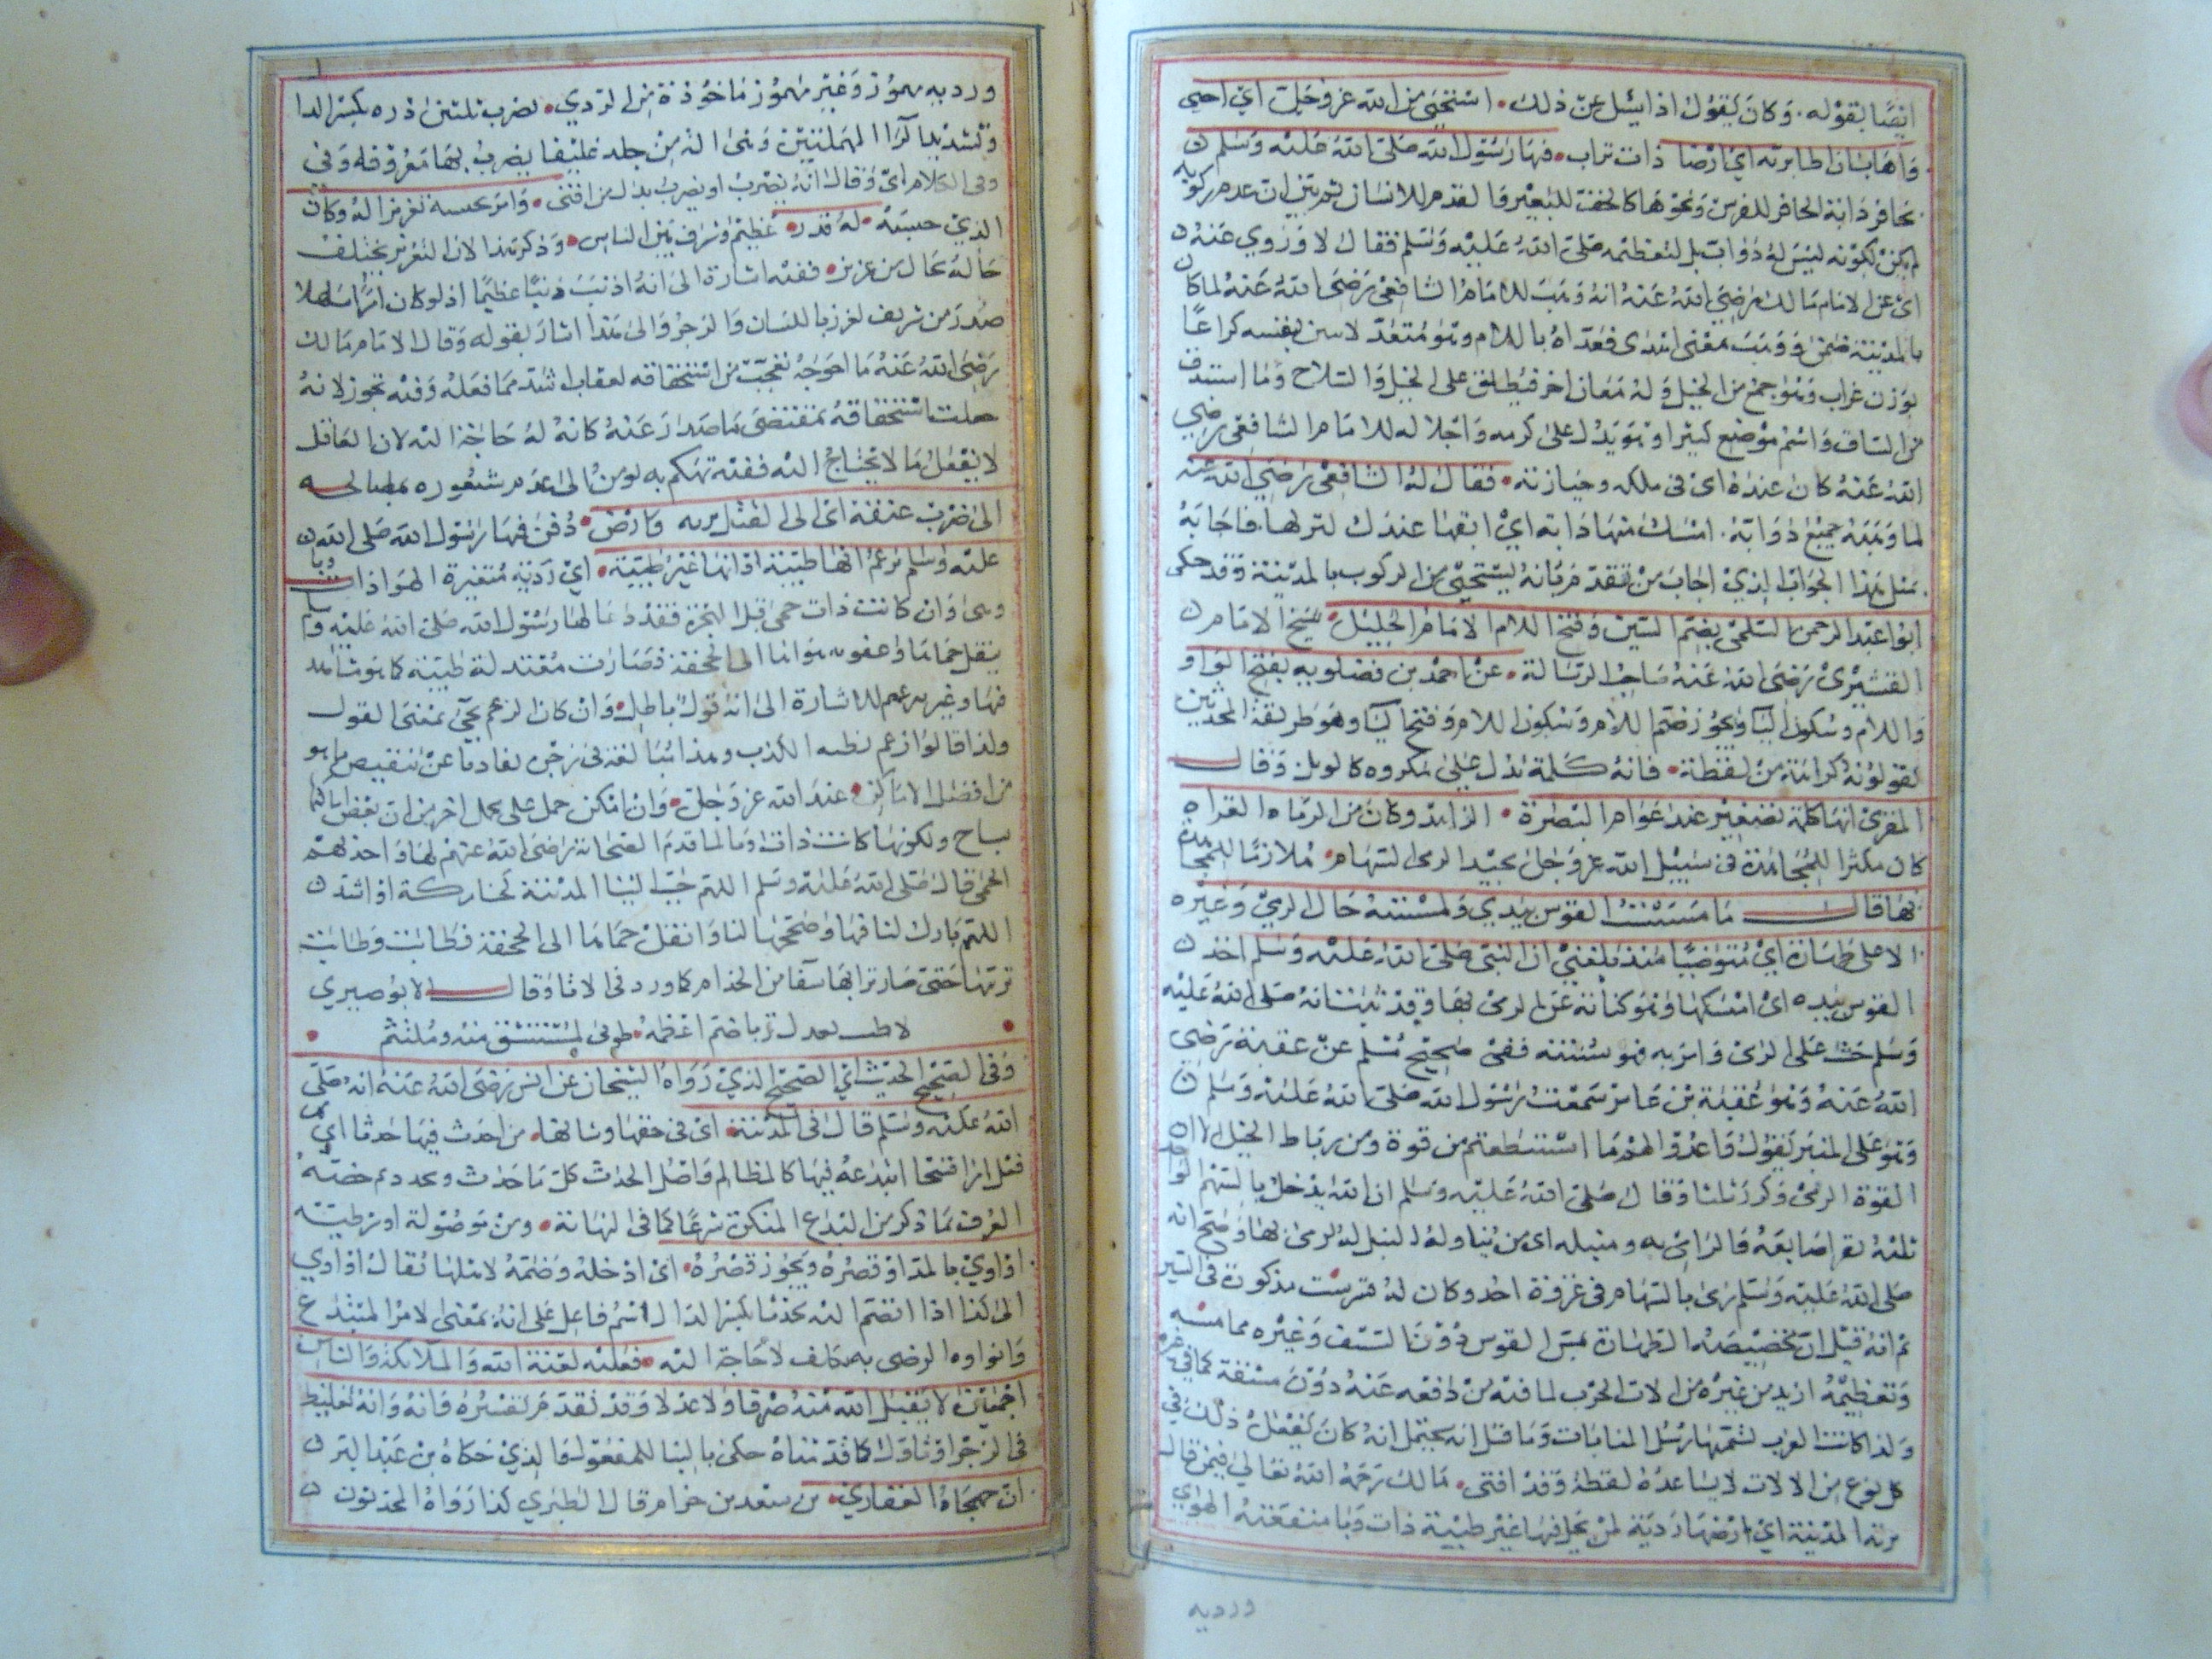 ايضا بقوله وكان يقول اذا سئل عن ذلك استحيى من الله عز وجل اي احيي
واهابان اطا تربة اي ارضا ذات تراب فيها رسول الله صلى الله عليه وسلم
بحافر دابة الحافر للفرس ونحوها كالخف للبعير والقدم للانسان ثم بين ان عدم ركوبه
لم يكن لكونه ليس له دواب بل لتعظيمه صلى الله عليه وسلم فقال وروي عنه
اي عن الامام مالك رضي الله عنه انه وهب للامام الشافعي رضي الله عنه لما كان
بالمدينة ضمن ووهب معنى اهدى فعداه باللام وهو متعد لاسن بنفسه كراعا
بوزن غراب وهو جمع من الخيل وله معان اخر فيطلق على الخيل والسلاح وما استدف
من الساق واسم موضع كثيرا وهو يدل على كرمه واجلاله للامام الشافعي رضي
الله عنه كان عنده اي في ملكه وحيازته فقال له الشافعي رضي الله عنه
لما وهبه جميع دوابه امسك منها دابة اي ابقها عندك لتركبها فاجابه
بمثل هذا الجواب الذي اجاب من تقدم مر بانه يستحيي من الركوب بالمدينة وقد حكى
ابو عبد الرحمن السلمي بضم السين وفتح اللام الامام الجليل شيخ الامام
القشيري رضي الله عنه صاحب الرسالة عن احمد بن فضلويه بفتح الواو
واللام وسكون اليا ويجوز ضم اللام وسكون اللام وفتح اليا وهو طريقة المحدثين
يقولونه كراهة من لفظة فانه كلمة تدل على مكروه كالويل وقال
المقري انها كلمة تصغير عند عوام البصرة الزاهد وكان من الرماة الغزاه
كان مكثرا للمجاهدة في سبيل الله عز وجل يجيد الرمي السهام ملازما للمجاهدة
بها قال ما مسست القوس بيدي ولمسته حال الرمي وغيره
الا على طهارة اي متوضيا منذ بلغني ان النبي صلى الله عليه وسلم اخذ
القوس بيده اي امسكها وهو كناية عن الرمي بها وقد ثبت انه صلى الله عليه
وسلم حث على الرمي وامر به فهو سنته ففي صحيح مسلم عن عقبة رضي
الله عنه وهو عقبة بن عامر سمعت رسول الله صلى الله عليه وسلم
وهو على المنبر يقول واعدوا لهم ما استطعتم من قوة ومن رباط الخيل الا ان
القوة الرمي وكرر ثلاثا وقال صلى الله عليه وسلم ان الله يدخل بالسهم الواحد
ثلاثة نفر صانعه والرامي به ومنبله اي من يناوله النبل له لرمي بها وصح انه
صلى الله عليه وسلم رمى بالسهام في غزوة احد وكان له قوس مذكورة في السير
ثم انه قيل ان تخصيصه الطهارة بمس القوس دون السيف وغيره مما مسه
وتعظيمه ازيد من غيره من الات الحرب لما فيه من دفعه عنه دون مشقة كما في غيره
ولذا كانت العرب تسميها رسل المنايات وما قيل انه يحتمل انه كان يفعل ذلك في
كل نوع من الالات لا يساعده لفظه وقد افتى مالك رحمه الله تعالى فيمن قال
تربة المدينة اي ارضها ردية لمن يحل فيها غير طيبة ذات وبا منفعته الهوي
وردية
وردية مهموز وغير مهموز ماخوذة من الردي يضرب ثلثين دره بكسر الدا
وتشديد الرا المهملتين وهي الة من جلد غليظ يضرب بها معروفة وفي
وفي الكلام اي وقال انه يضرب او يضرب بدل من افتى وامر بحبسه تعزيزا له وكان
الذي حبسه له قدر عظيم وشرف بين الناس وذكر هذا لان التعزير يختلف
حاله بحال من عزر ففيه اشارة الى انه اذنب ذنبا عظيما اذ لو كان امرا سهلا
صدر من شريف لعزر باللسان والزجر والى هذا اشار بقوله وقال الامام مالك
رضي الله عنه ما احوجه تعجب من استحقاقه لعقاب اشد مما فعله وفيه تجوز لانه
جعلت استحقاقه بمقتضى ما صدر عنه كانه له حاجة اليه لان العاقل
لا يفعل ما لا يحتاج اليه ففيه تهكم به يومئ الى عدم شعوره بمصالحه
الى ضرب عنقه اي الى القتل تربه وارض دفن فيها رسول الله صلى الله
عليه وسلم يزعم انها طيبة اذ انها غير طيبة اي ردية متغيرة الهوا ذات وبا
وهي وان كانت ذات حمى قبل الهجرة فقد دعا لها رسول الله صلى الله عليه وسلم
بنقل حماها وعفونه هوائها الى الجحفة فصارت معتدلة طيبة كما هو شاهد
فيها وغير يزعم للاشارة الى انه قول باطل وان كان الزعم يجي بمعنى القول
ولذا قالوا زعم مطيه الكذب وهذا مبالغة في زجره تفاديا عن تنقيص ما هو
من افضل الاماكن عند الله عز وجل وان امكن حمل على محل اخر من ان بعض اماكنها
سباخ ولكونها كانت ذات وبا لما قدم الصحابة رضي الله عنهم لها واخذتهم
الحمى قال صلى الله عليه وسلم اللهم حبب الينا المدينة كحبنا مكة او اشد
اللهم بارك لنا فيها وصححها لنا وانقل حماها الى الجحفة فطابت وطابت
تربتها حتى صار ترابها شفا من الجذام كما ورد في الاثار وقال الابوصيري
لا طيب يعدل تربا ضم اعظمه طوبى لمستنشق منه وملتثم
وفي الصحيح الحديث اي الصحيح الذي رواه الشيخان عن انس رضي الله عنه انه صلى
الله عليه وسلم قال في المدينة اي في حقها وشانها من احدث فيها حدثا اي
فتل امرا فتحا ابتدعه فيها كالمظالم واصل الحدث كل ما حدث وتجدد ثم خصه
العرف بما ذكر من البدع المنكرة شرعا كما في النهاية ومن موصولة او شرطية
او اوي بالمد او قصره ويجوز قصره اي ادخله وضمه لا منلها يقال او اوي
الى كذا اذا انضم اليه محدثا بكسر الدال اسم فاعل على انه بمعنى الامر المبتدع
وايواوه الرضى به تكلف لا حاجة اليه فعليه لعنة الله والملائكة والناس
اجمعين لا يقبل الله منه صرفا ولا عدلا وقد تقدم تفسيره وانه وانه تغليظ
في الزجر او تاول كما قدمناه حكي بالبنا للمفعول والذي حكاه بن عبد البر
ان جهجاه الغفاري بن سعد بن حرام قال الطبري كذا رواه المحدثون